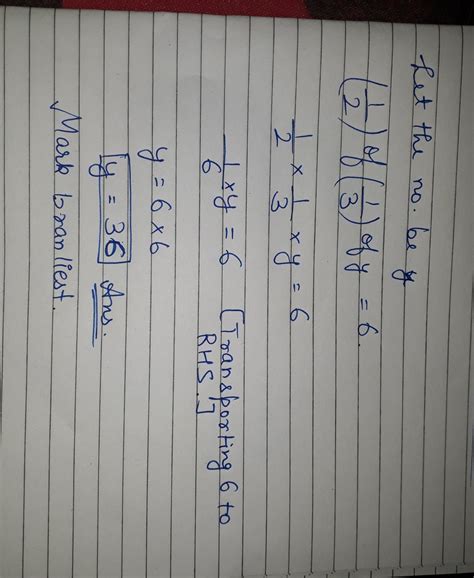 Let the no. be y
(1/2) of (1/3) of y = 6.
1/2 × 1/3 × y = 6
1/6 × y = 6 [Transporting 6 to RHS.]
y = 6×6
y = 36 Ans.
Mark branliest.